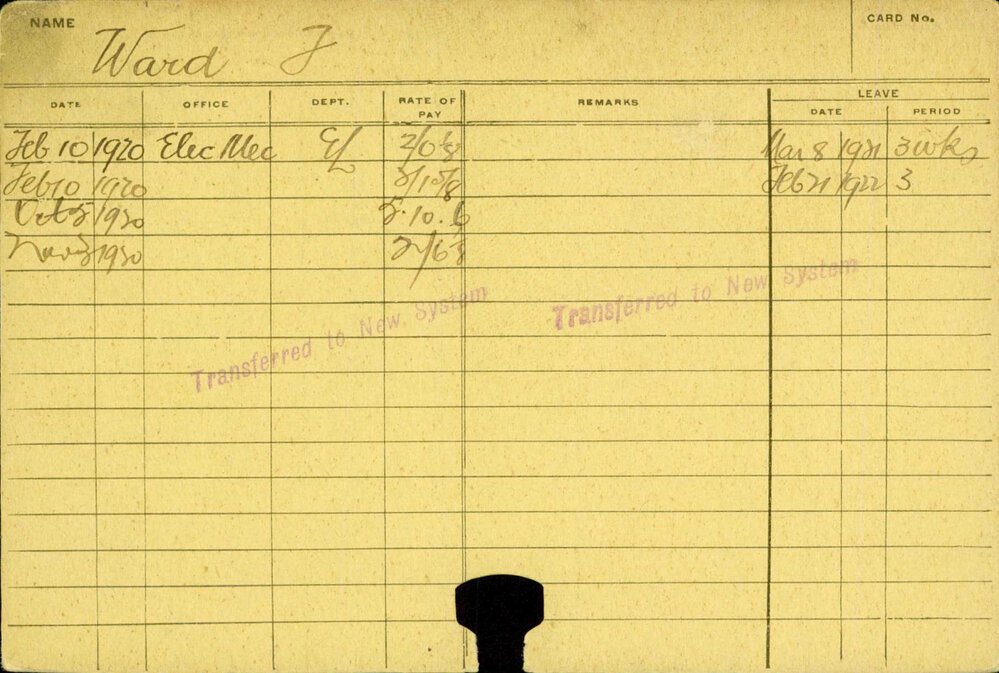 NAME
CARD No.
Ward J
DATE OFFICE DEPT. RATE OF PAY REMARKS LEAVE
DATE PERIOD
Feb 10 1920 Elec Mec EL Mar 8 1921 3 wks
Feb 10 1920 Feb 21 1922 3
Oct 5 1920 5.10.6
Nov 3 1920
Transferred to New System
Transferred to New System